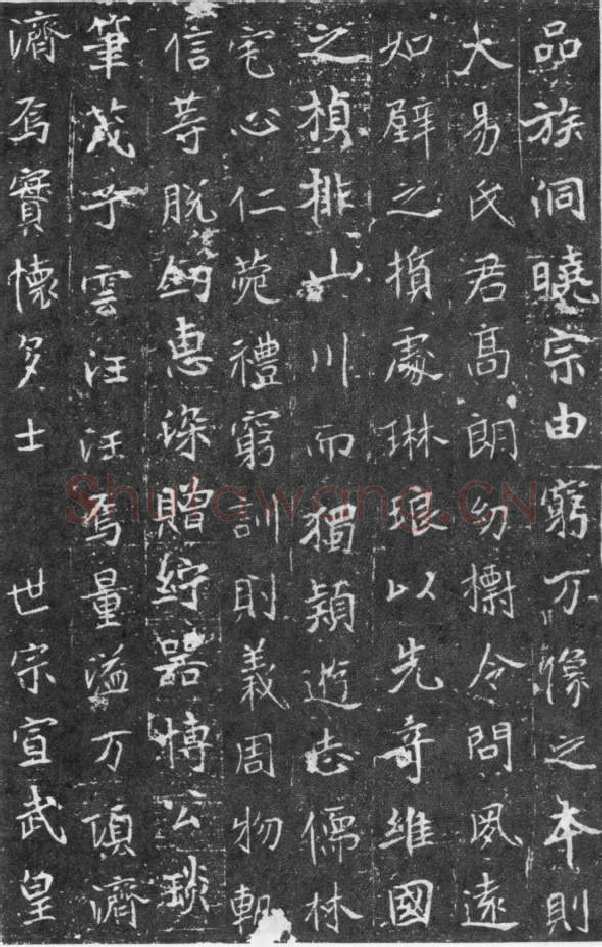 品族洞曉宗由窮万像之本則
大易氏君高朗幼檦令問夙遠
如璧之處琳琅以先奇維國
之楨排山川而獨穎遊志儒林
宅心仁菀禮窮訓則義周物軌
信等脫劒惠深贈紵器博公琰
筆茂子雲汪汪焉量溢万頃濟
濟焉實懷多士　世宗宣武皇
Shufawang.CN